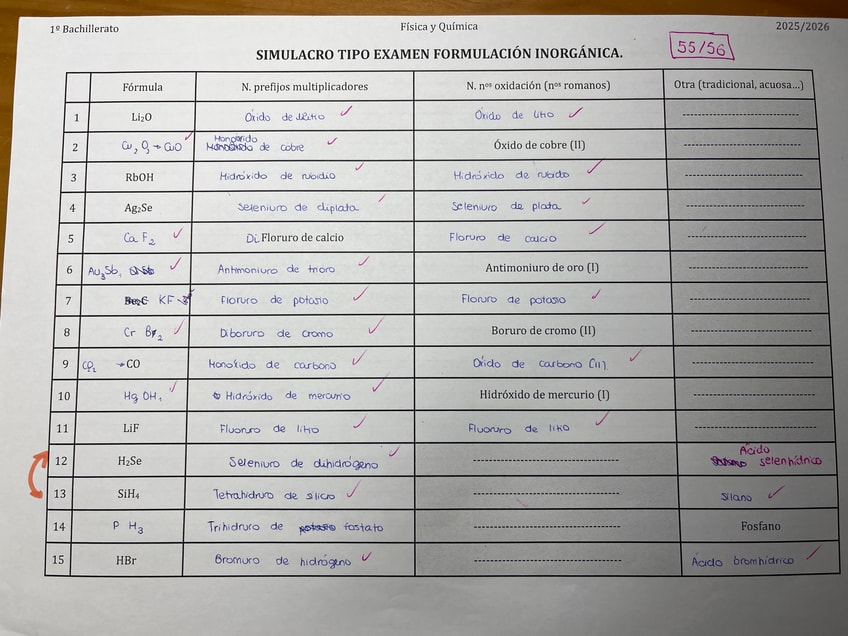 1º Bachillerato Física y Química 2025/2026
SIMULACRO TIPO EXAMEN FORMULACIÓN INORGÁNICA. 55/56
Fórmula N. prefijos multiplicadores N. nos oxidación (nos romanos) Otra (tradicional, acuosa...)
1 Li2O Óxido de litio Óxido de litio --------------------
2 Cu2O2 → CuO Monóxido de cobre Óxido de cobre (II) --------------------
3 RbOH Hidróxido de rubidio Hidróxido de rubidio --------------------
4 Ag2Se Seleniuro de diplata Seleniuro de plata --------------------
5 CaF2 Di Floruro de calcio Floruro de calcio --------------------
6 Au3Sb1 Antimoniuro de trioro Antimoniuro de oro (I) --------------------
7 KF Floruro de potasio Floruro de potasio --------------------
8 Cr Br2 Diboruro de cromo Boruro de cromo (II) --------------------
9 → CO Monóxido de carbono Óxido de carbono (II) --------------------
10 Hg OH1 Hidróxido de mercurio Hidróxido de mercurio (I) --------------------
11 LiF Fluoruro de litio Fluoruro de litio --------------------
12 H2Se Seleniuro de dihidrógeno -------------------- Ácido selenhídrico
13 SiH4 Tetrahidruro de silicio -------------------- Silano
14 P H3 Trihidruro de fosfato -------------------- Fosfano
15 HBr Bromuro de hidrógeno -------------------- Ácido bromhídrico